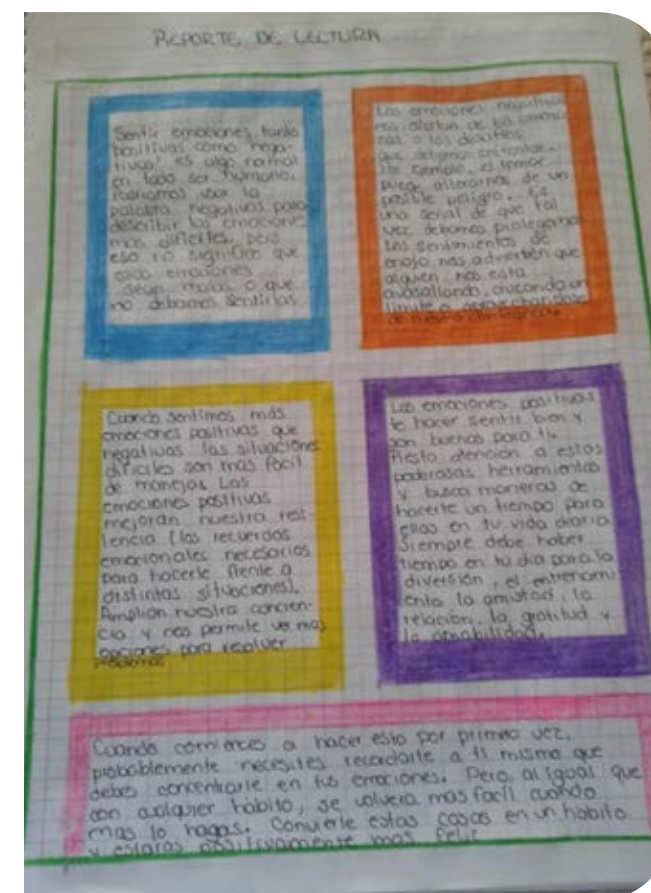 REPORTE DE LECTURA
Sentir emociones, tanto
positivas como nega-
tivas es algo normal
en todo ser humano.
Podriamos usar la
palabra negativas para
describir las emociones
mas dificiles, pero
eso no significa que
esas emociones
sean malas o que
no debamos sentirlas
Las emociones negativas
nos alertan de las amena
zas o los desafios
que debamos enfrentar.
Por ejemplo, el temor
puede alterarnos de un
posible peligro. Es
una señal de que tal
vez debamos protegernos
Los sentimientos de
enojo nos advierten que
alguien nos esta
avasallando, cruzando un
limite o aprovechandose
de nuestra confianza.
Cuando sentimos más
emociones positivas que
negativas las situaciones
dificiles son mas facil
de manejar Las
emociones positivas
mejoran nuestra resi-
lencia (los recuerdos
emocionales necesarios
para hacerle frente a
distintas situaciones).
Amplian nuestra concien-
cia y nos permite ver mas
opciones para resolver
problemas
Las emociones positivas
te hacer sentir bien y
son buenas para ti.
Presta atencion a estas
poderosas herramientas
y busca maneras de
hacerte un tiempo para
ellas en tu vida diaria
Siempre debe haber
tiempo en tu dia para la
diversión, el entrenami
ento la amistad, la
relacion, la gratitud y
la amabilidad.
Cuando comiences a hacer esto por primera vez.
probablemente necesites recordarte a ti mismo que
debes concentrarte en tus emociones. Pero, al igual que
con cualquier habito, se volvera mas facil cuando
mas lo hagas. Convierte estas cosas en un habito
y estaras positivamente mas feliz